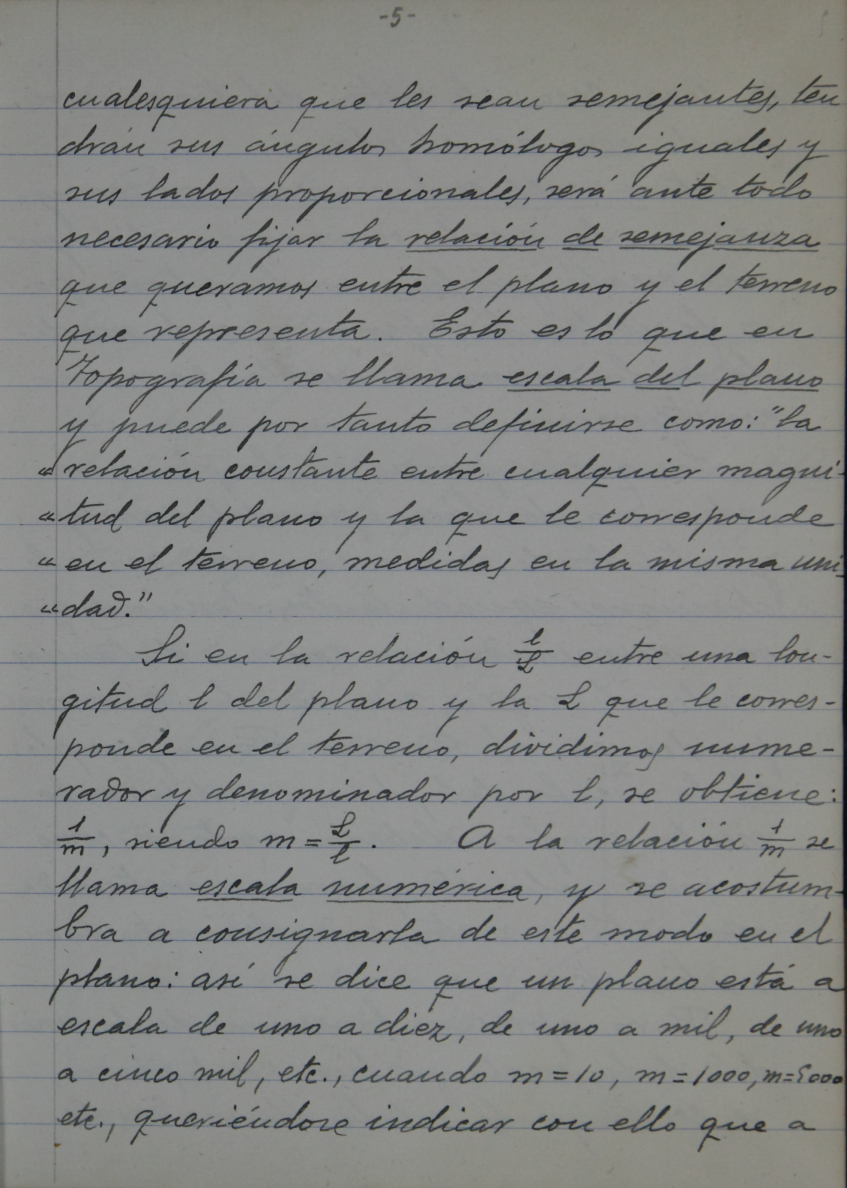 -5-
cualesquiera que les sean semejantes, ten
drán sus ángulos homólogos iguales y
sus lados proporcionales, será ante todo
necesario fijar la relación de semejanza
que queramos entre el plano y el terreno
que representa. Esto es lo que en
Topografía se llama escala del plano
y puede por tanto definirse como: "la
"relación constante entre cualquier magni-
"tud del plano y la que le corresponde
"en el terreno, medidas en la misma uni-
"dad."
Si en la relación l/L entre una lon-
gitud l del plano y la L que le corres-
ponde en el terreno, dividimos nume-
rador y denominador por l, se obtiene:
1/m, siendo m = L/l. A la relación 1/m se
llama escala numérica, y se acostum-
bra a consignarla de este modo en el
plano: así se dice que un plano está a
escala de uno a diez, de uno a mil, de uno
a cinco mil, etc., cuando m = 10, m = 1000, m = 5000
etc., queriéndose indicar con ello que a